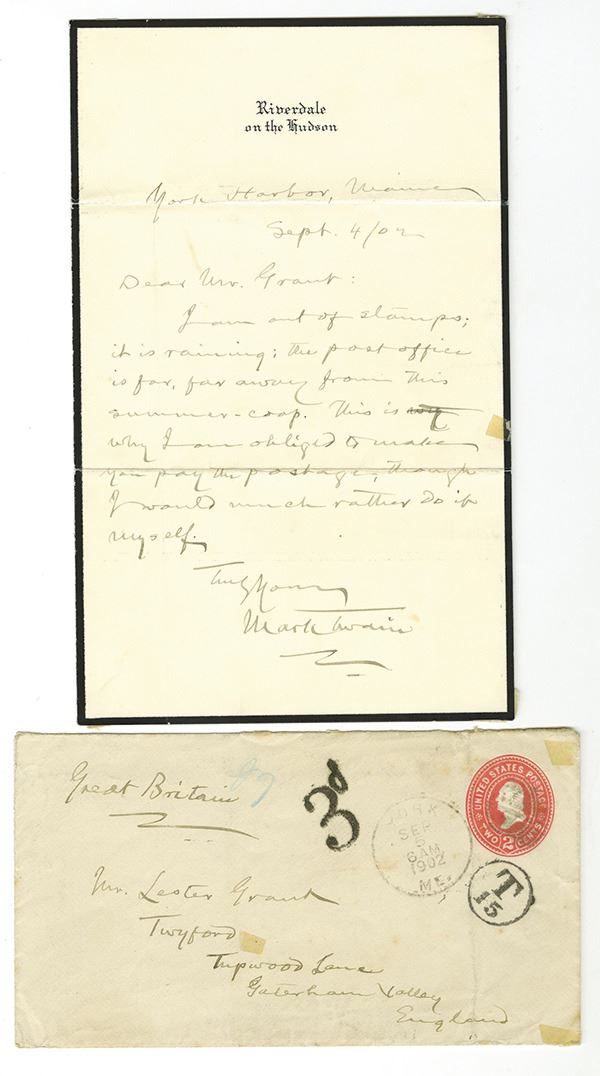 Riverdale
on the Hudson
York Harbor, Maine
Sept. 4/02
Dear Mr. Grant:
I am out of stamps;
it is raining; the post office
is far, far away from this
summer-coop. This is
why I am obliged to make
you pay the postage, though
I would much rather do it
myself.
Truly Yours
Mark Twain
Great Britain
3d
YORK
SEP
5
6 AM
1902
ME.
UNITED STATES POSTAGE
TWO 2 CENTS
T
15
Mr. Lester Grant
Twyford
Tupwood Lane
Caterham Valley
England